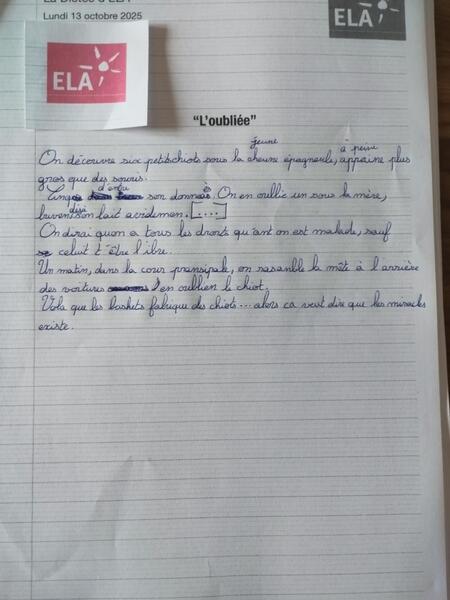 La Dictée d'ELA
Lundi 13 octobre 2025
ELA
ELA
"L'oubliée"
jeune à peine
On découvre six petitschiots sous la cheune épagneule, appeine plus
gros que des souris.
d'entre és
Cinq son donnés. On en oublie un sous la mère,
buvent son lait avidemen. [....]
On dirai quon a tous les droits qu'ant on est malade, sauf
celuit t être l'ibre.
Un matin, dans la cour pransipale, on rasanble la mête à l'arrière
des voitures en oublien le chiot.
Vola que les baskets fabrique des chiots... alors ca veut dire que les miracles
existe.